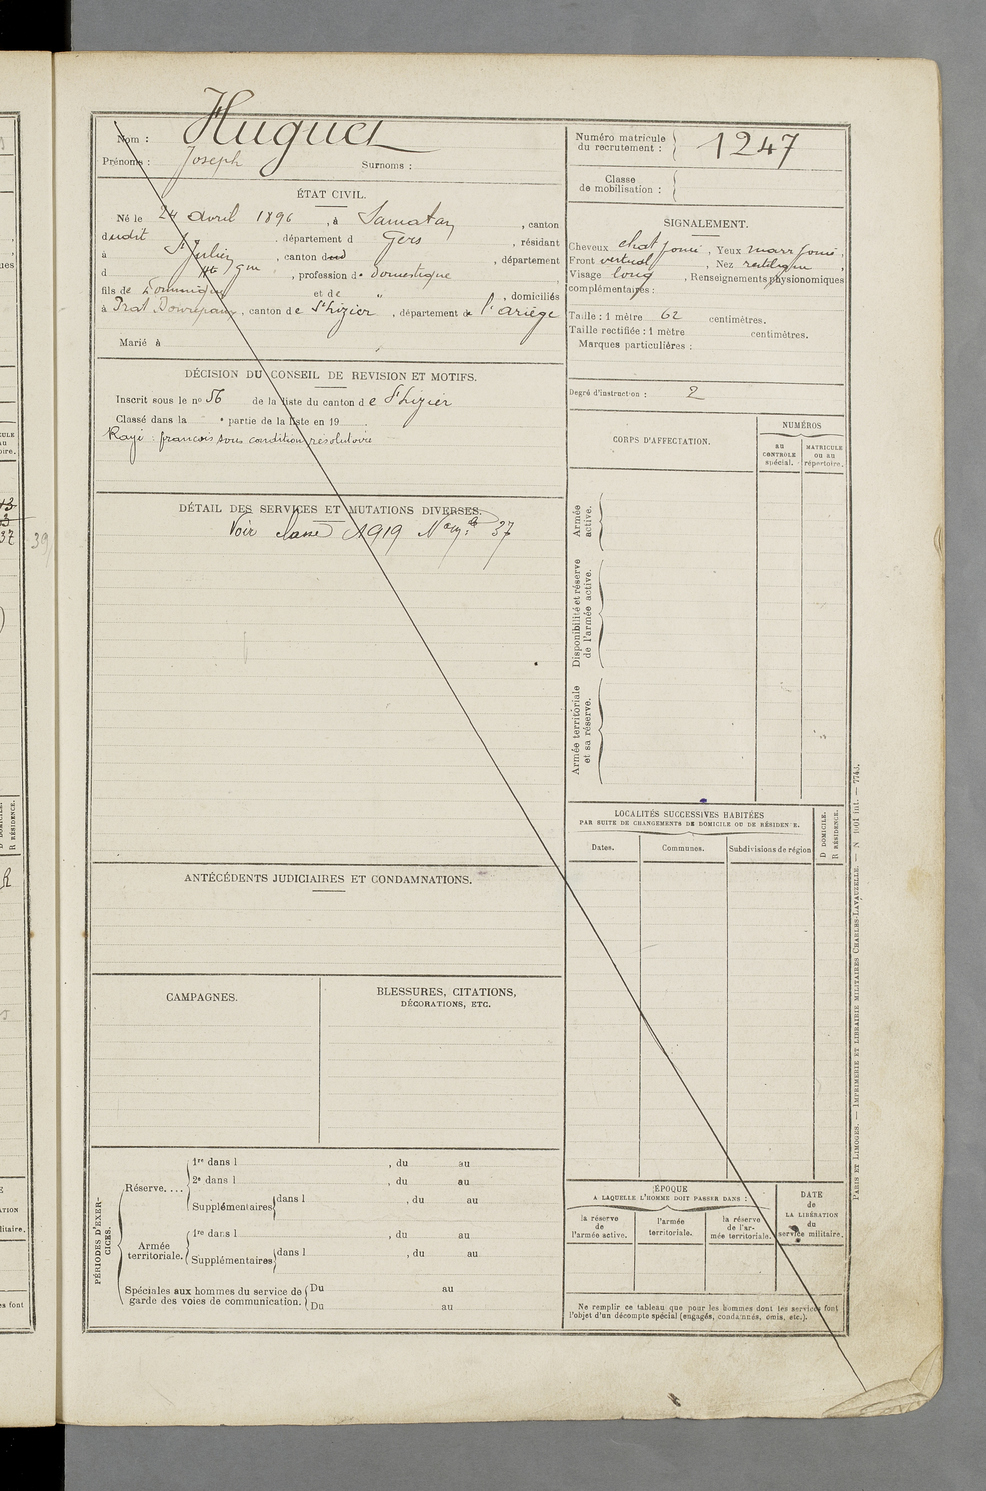 Nom : Huguet
Prénoms : Joseph Surnoms :
Numéro matricule
du recrutement : 1247
Classe
de mobilisation :
ÉTAT CIVIL.
Né le 24 avril 1896, à Samatan, canton
dudit, département d Gers, résidant
à St Julien, canton dud, département
d Hte Gne, profession de Domestique
fils de Dominique et de „, domiciliés
à Prat Bonrepaux, canton de St Lizier, département de l'Ariège
Marié à
SIGNALEMENT.
Cheveux chat foncé, Yeux marr foncé,
Front vertical, Nez rectiligne,
Visage long, Renseignements physionomiques
complémentaires :
Taille : 1 mètre 62 centimètres.
Taille rectifiée : 1 mètre centimètres.
Marques particulières :
Degré d'instruction : 2
DÉCISION DU CONSEIL DE REVISION ET MOTIFS.
Inscrit sous le no 56 de la liste du canton de St Lizier
Classé dans la e partie de la liste en 19 .
Rayé : français sous condition résolutoire
DÉTAIL DES SERVICES ET MUTATIONS DIVERSES.
Voir classe 1919 37
CORPS D'AFFECTATION.
NUMÉROS
au
CONTROLE
spécial.
MATRICULE
ou au
répertoire.
Armée
active.
Disponibilité et réserve
de l'armée active.
Armée territoriale
et sa réserve.
LOCALITÉS SUCCESSIVES HABITÉES
PAR SUITE DE CHANGEMENTS DE DOMICILE OU DE RÉSIDEN E.
Dates. Communes. Subdivisions de région
D DOMICILE.
R RÉSIDENCE.
ANTÉCÉDENTS JUDICIAIRES ET CONDAMNATIONS.
CAMPAGNES.
BLESSURES, CITATIONS,
DÉCORATIONS, ETC.
PÉRIODES D'EXER-
CICES.
Réserve....
1re dans l , du au
2e dans l , du au
Supplémentaires dans l , du au
Armée
territoriale.
1re dans l du au
Supplémentaires dans l , du au
Spéciales aux hommes du service de
garde des voies de communication.
Du au
Du au
ÉPOQUE
A LAQUELLE L'HOMME DOIT PASSER DANS :
la réserve
de
l'armée active.
l'armée
territoriale.
la réserve
de l'ar-
mée territoriale.
DATE
de
LA LIBÉRATION
du
service militaire.
Ne remplir ce tableau que pour les hommes dont les services font
l'objet d'un décompte spécial (engagés, condamnés, omis, etc.).
PARIS ET LIMOGES. — IMPRIMERIE ET LIBRAIRIE MILITAIRES CHARLES-LAVAUZELLE. — N 1001 int. — 7743.